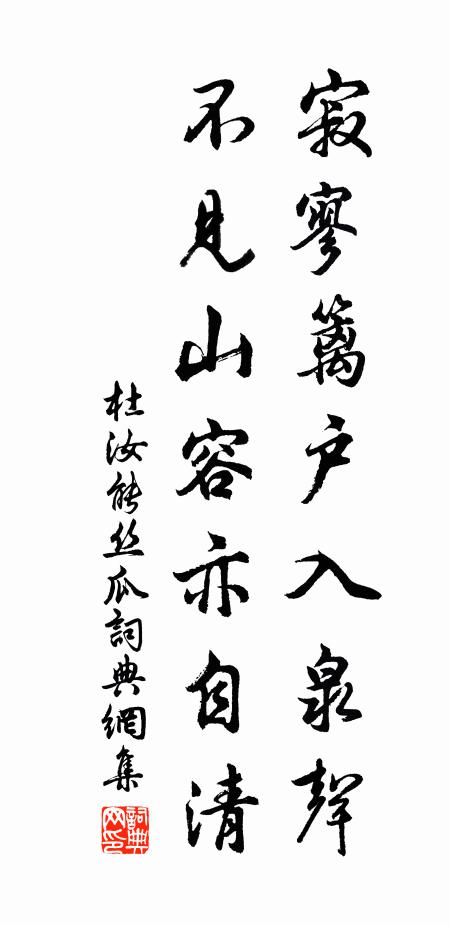 寂寥篱户入泉聲
不見山容亦自清
杜汝能丝瓜詞典網集
詞典网印